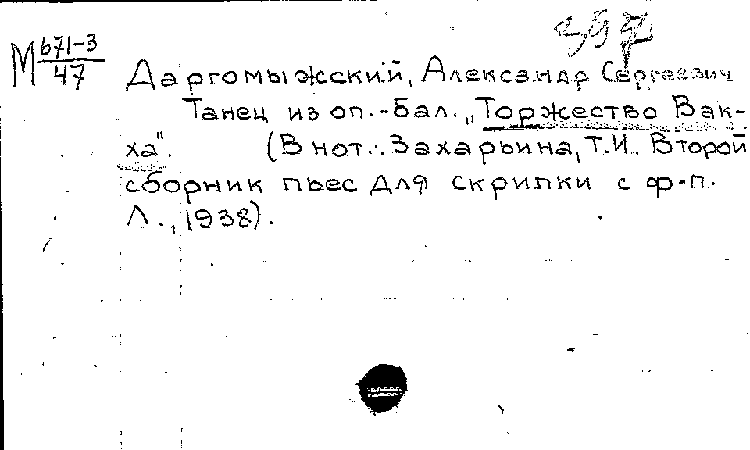 397
М б71-3
47
Даргомыжский, Александр Сергеевич
Танец из оп.-бал. „Торжество Вак-
ха". (В нот.: Захарьина, Т.И. Второй
сборник пьес для скрипки с ф-п.
Л., 1938).